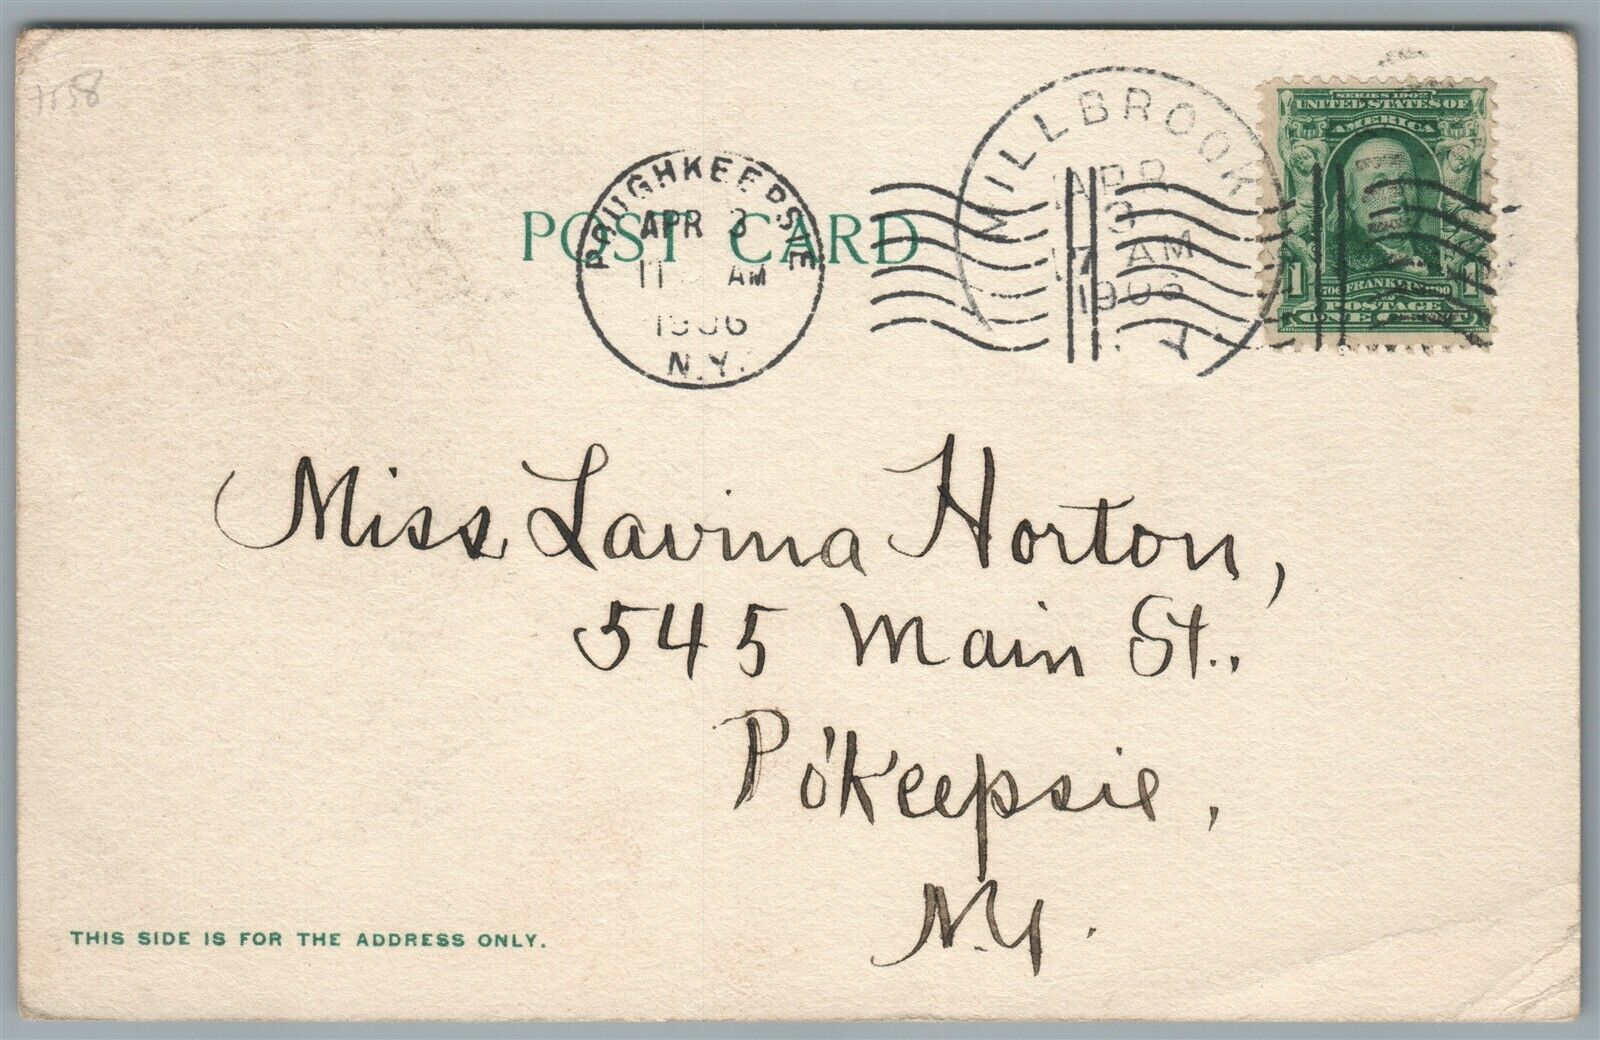 7558
POST CARD
POUGHKEEPSIE
APR 3
11 AM
1906
N.Y.
MILLBROOK
APR
3
7 AM
1906
N.Y.
SERIES 1902
UNITED STATES OF
AMERICA
1 1
1706 FRANKLIN 1790
POSTAGE
ONE CENT
Miss Lavina Horton,
545 Main St.,
Po'Keepsie,
N.Y.
THIS SIDE IS FOR THE ADDRESS ONLY.